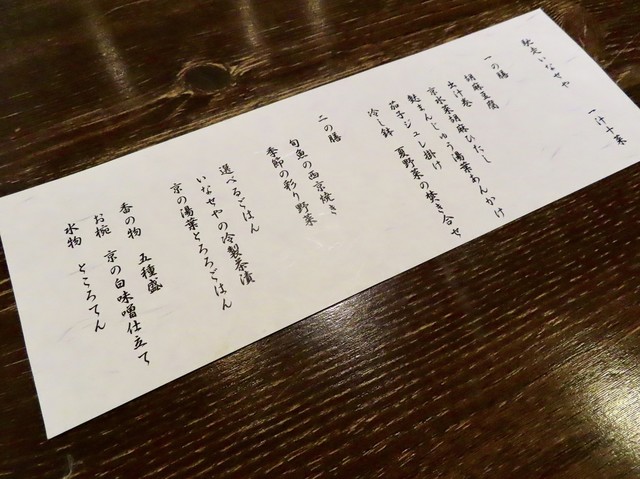 馳走いなせや
一汁十菜
一の膳
胡麻豆腐
出汁巻
京水菜胡麻ひたし
麩まんじゅう湯葉あんかけ
茄子ジュレ掛け
冷し鉢 夏野菜の焚き合せ
二の膳
旬魚の西京焼き
季節の彩り野菜
選べるごはん
いなせやの冷製茶漬
京の湯葉とろろごはん
香の物 五種盛
お椀 京の白味噌仕立て
水物 ところてん